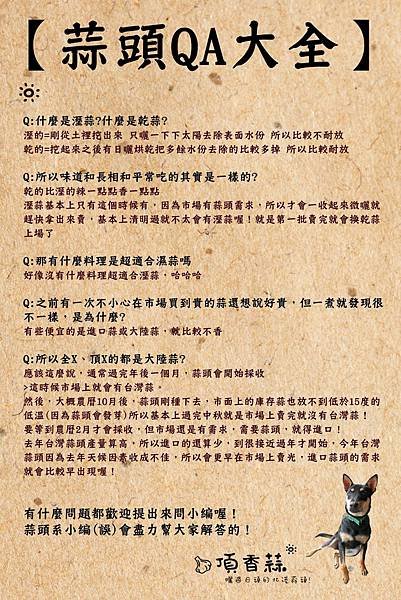 【蒜頭QA大全】
Q:什麼是溼蒜?什麼是乾蒜?
溼的=剛從土裡挖出來 只曬一下下太陽去除表面水份 所以比較不耐放
乾的=挖起來之後有日曬烘乾把多餘水份去除的比較多掉 所以比較耐放
Q:所以味道和長相和平常吃的其實是一樣的?
乾的比溼的辣一點點香一點點
溼蒜基本上只有這個時候有，因為市場有蒜頭需求，所以才會一收起來微曬就
趕快拿出來賣，基本上清明過就不太會有溼蒜喔！就是第一批賣完就會換乾蒜
上場了
Q:那有什麼料理是超適合濕蒜嗎
好像沒有什麼料理超適合溼蒜，哈哈哈
Q:之前有一次不小心在市場買到貴的蒜還想說好貴，但一煮就發現很
不一樣，是為什麼?
有些便宜的是進口蒜或大陸蒜，就比較不香
Q:所以全X、頂X的都是大陸蒜?
應該這麼說，通常過完年後一個月，蒜頭會開始採收
>這時候市場上就會有台灣蒜。
然後，大概農曆10月後，蒜頭剛種下去，市面上的庫存蒜也放不到低於15度的
低溫(因為蒜頭會發芽)所以基本上過完中秋就是市場上賣完就沒有台灣蒜！
要等到農曆2月才會採收，但市場還是有需求，需要蒜頭，就得進口！
去年台灣蒜頭產量算高，所以進口的還算少，到很接近過年才開始，今年台灣
蒜頭因為去年天候因素收成不佳，所以會更早在市場上賣光，進口蒜頭的需求
就會比較早出現喔！
有什麼問題都歡迎提出來問小編喔！
蒜頭系小編(誤)會盡力幫大家解答的！
頂香蒜
曬過日頭的北港蒜頭!